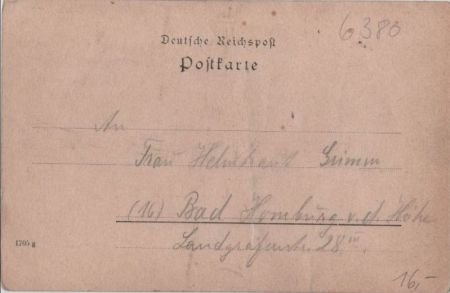 6380
Deutsche Reichspost
Postkarte
An
Frau Grimm
(16) Bad Homburg v. d. Höhe
Landgrafenstr. 28 III.
1705 g
16,-